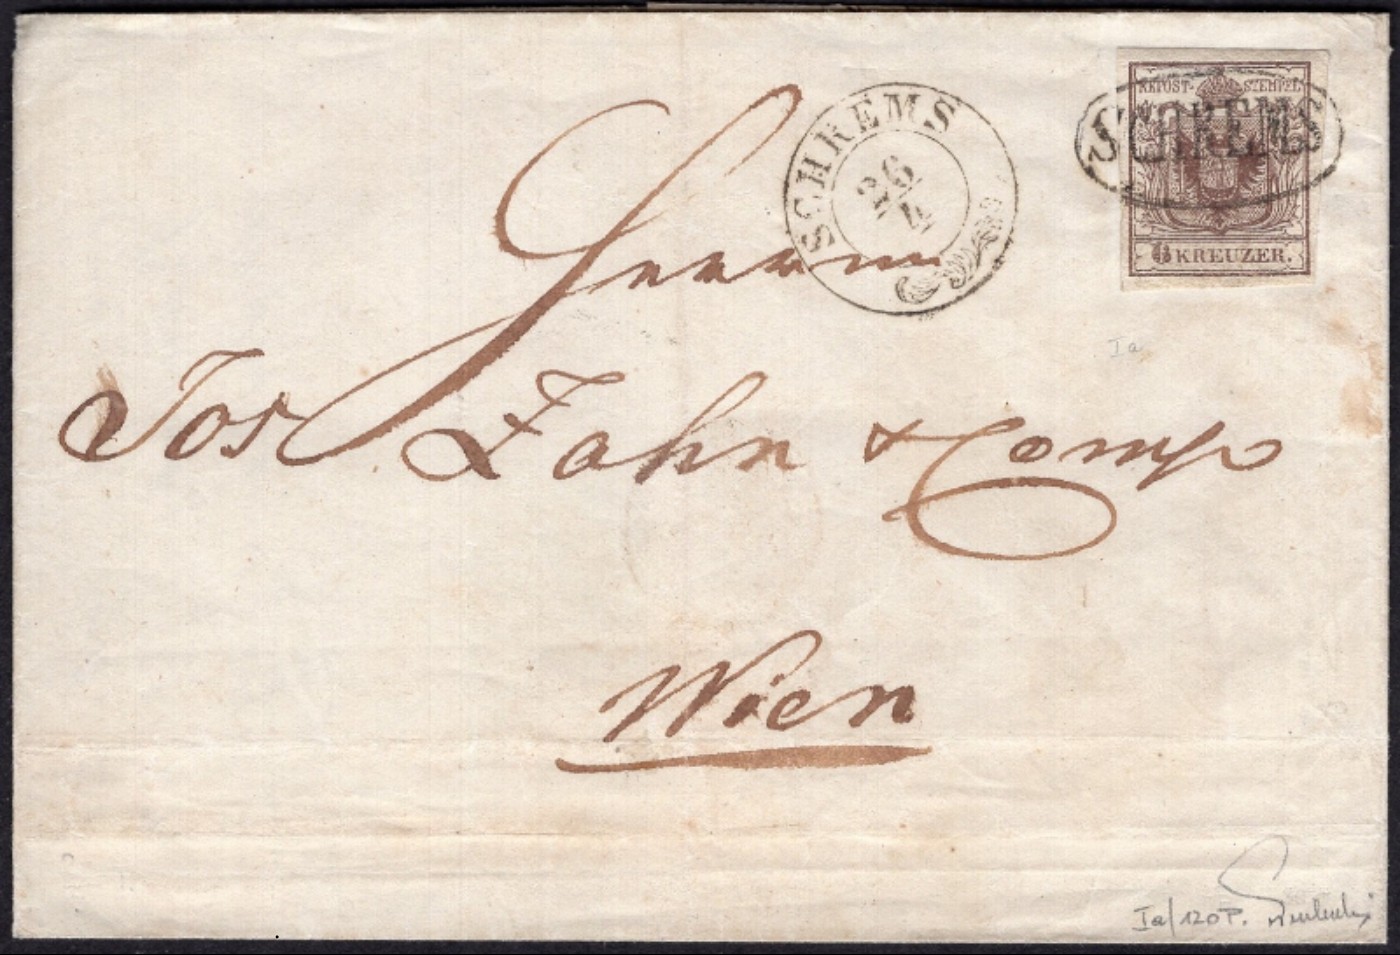 SCHREMS
26/4
KKPOST-STEMPEL
SCHREMS
6 KREUZER.
Herrn
Ia
Jos Zahn & Comp
Wien
Ia/120P.